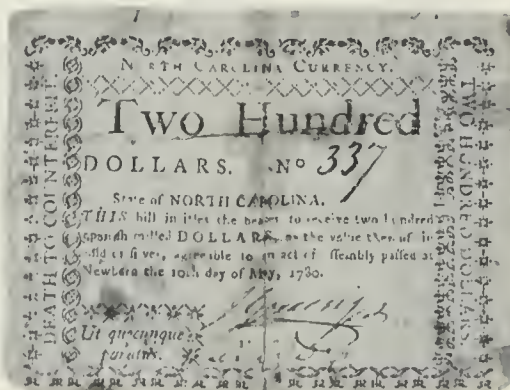 NORTH CAROLINA CURRENCY.
Two Hundred
DOLLARS. No 337
State of NORTH CAROLINA.
THIS bill intitles the bearer to receive two hundred
Spanish milled DOLLARS, or the value thereof in
gold or silver, agreeable to an act of assembly passed at
Newbern the 10th day of May, 1780.
Ut quocunque
paratus.
DEATH TO COUNTERFEIT.
TWO HUNDRED DOLLARS.